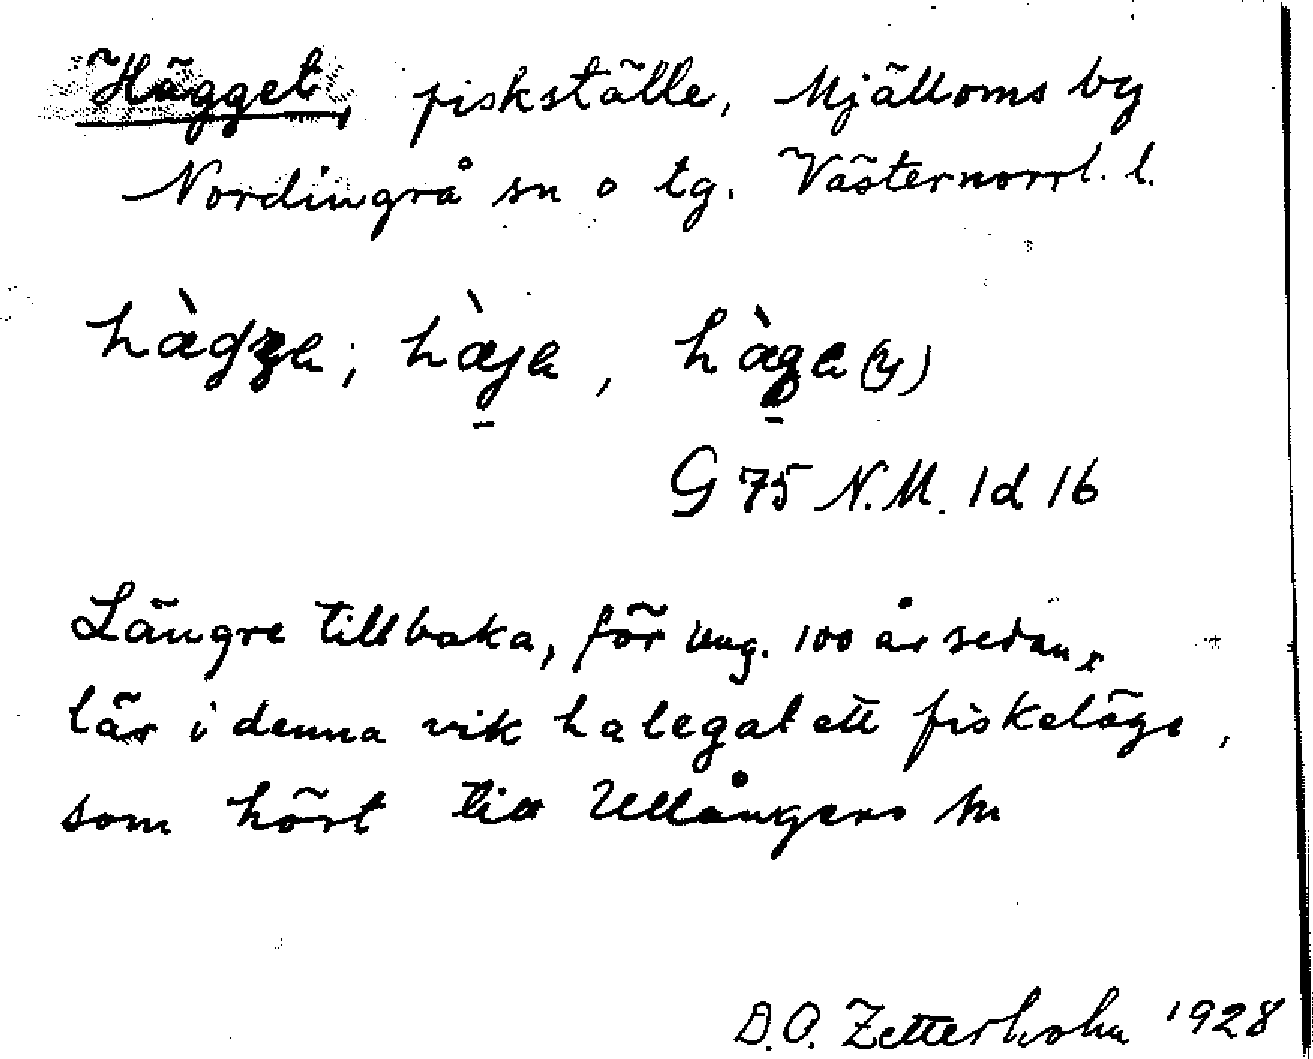 Hägget, fiskställe, Mjälloms by
Nordingrå sn o tg. Västernorrl. l.
hàgge; hàje, hàge(y)
G 75 N.M. 1d 16
Längre tillbaka, för ung. 100 år sedan,
lär i denna vik ha legat ett fiskeläge,
som hört till Ullångers sn
D.O. Zetterholm 1928